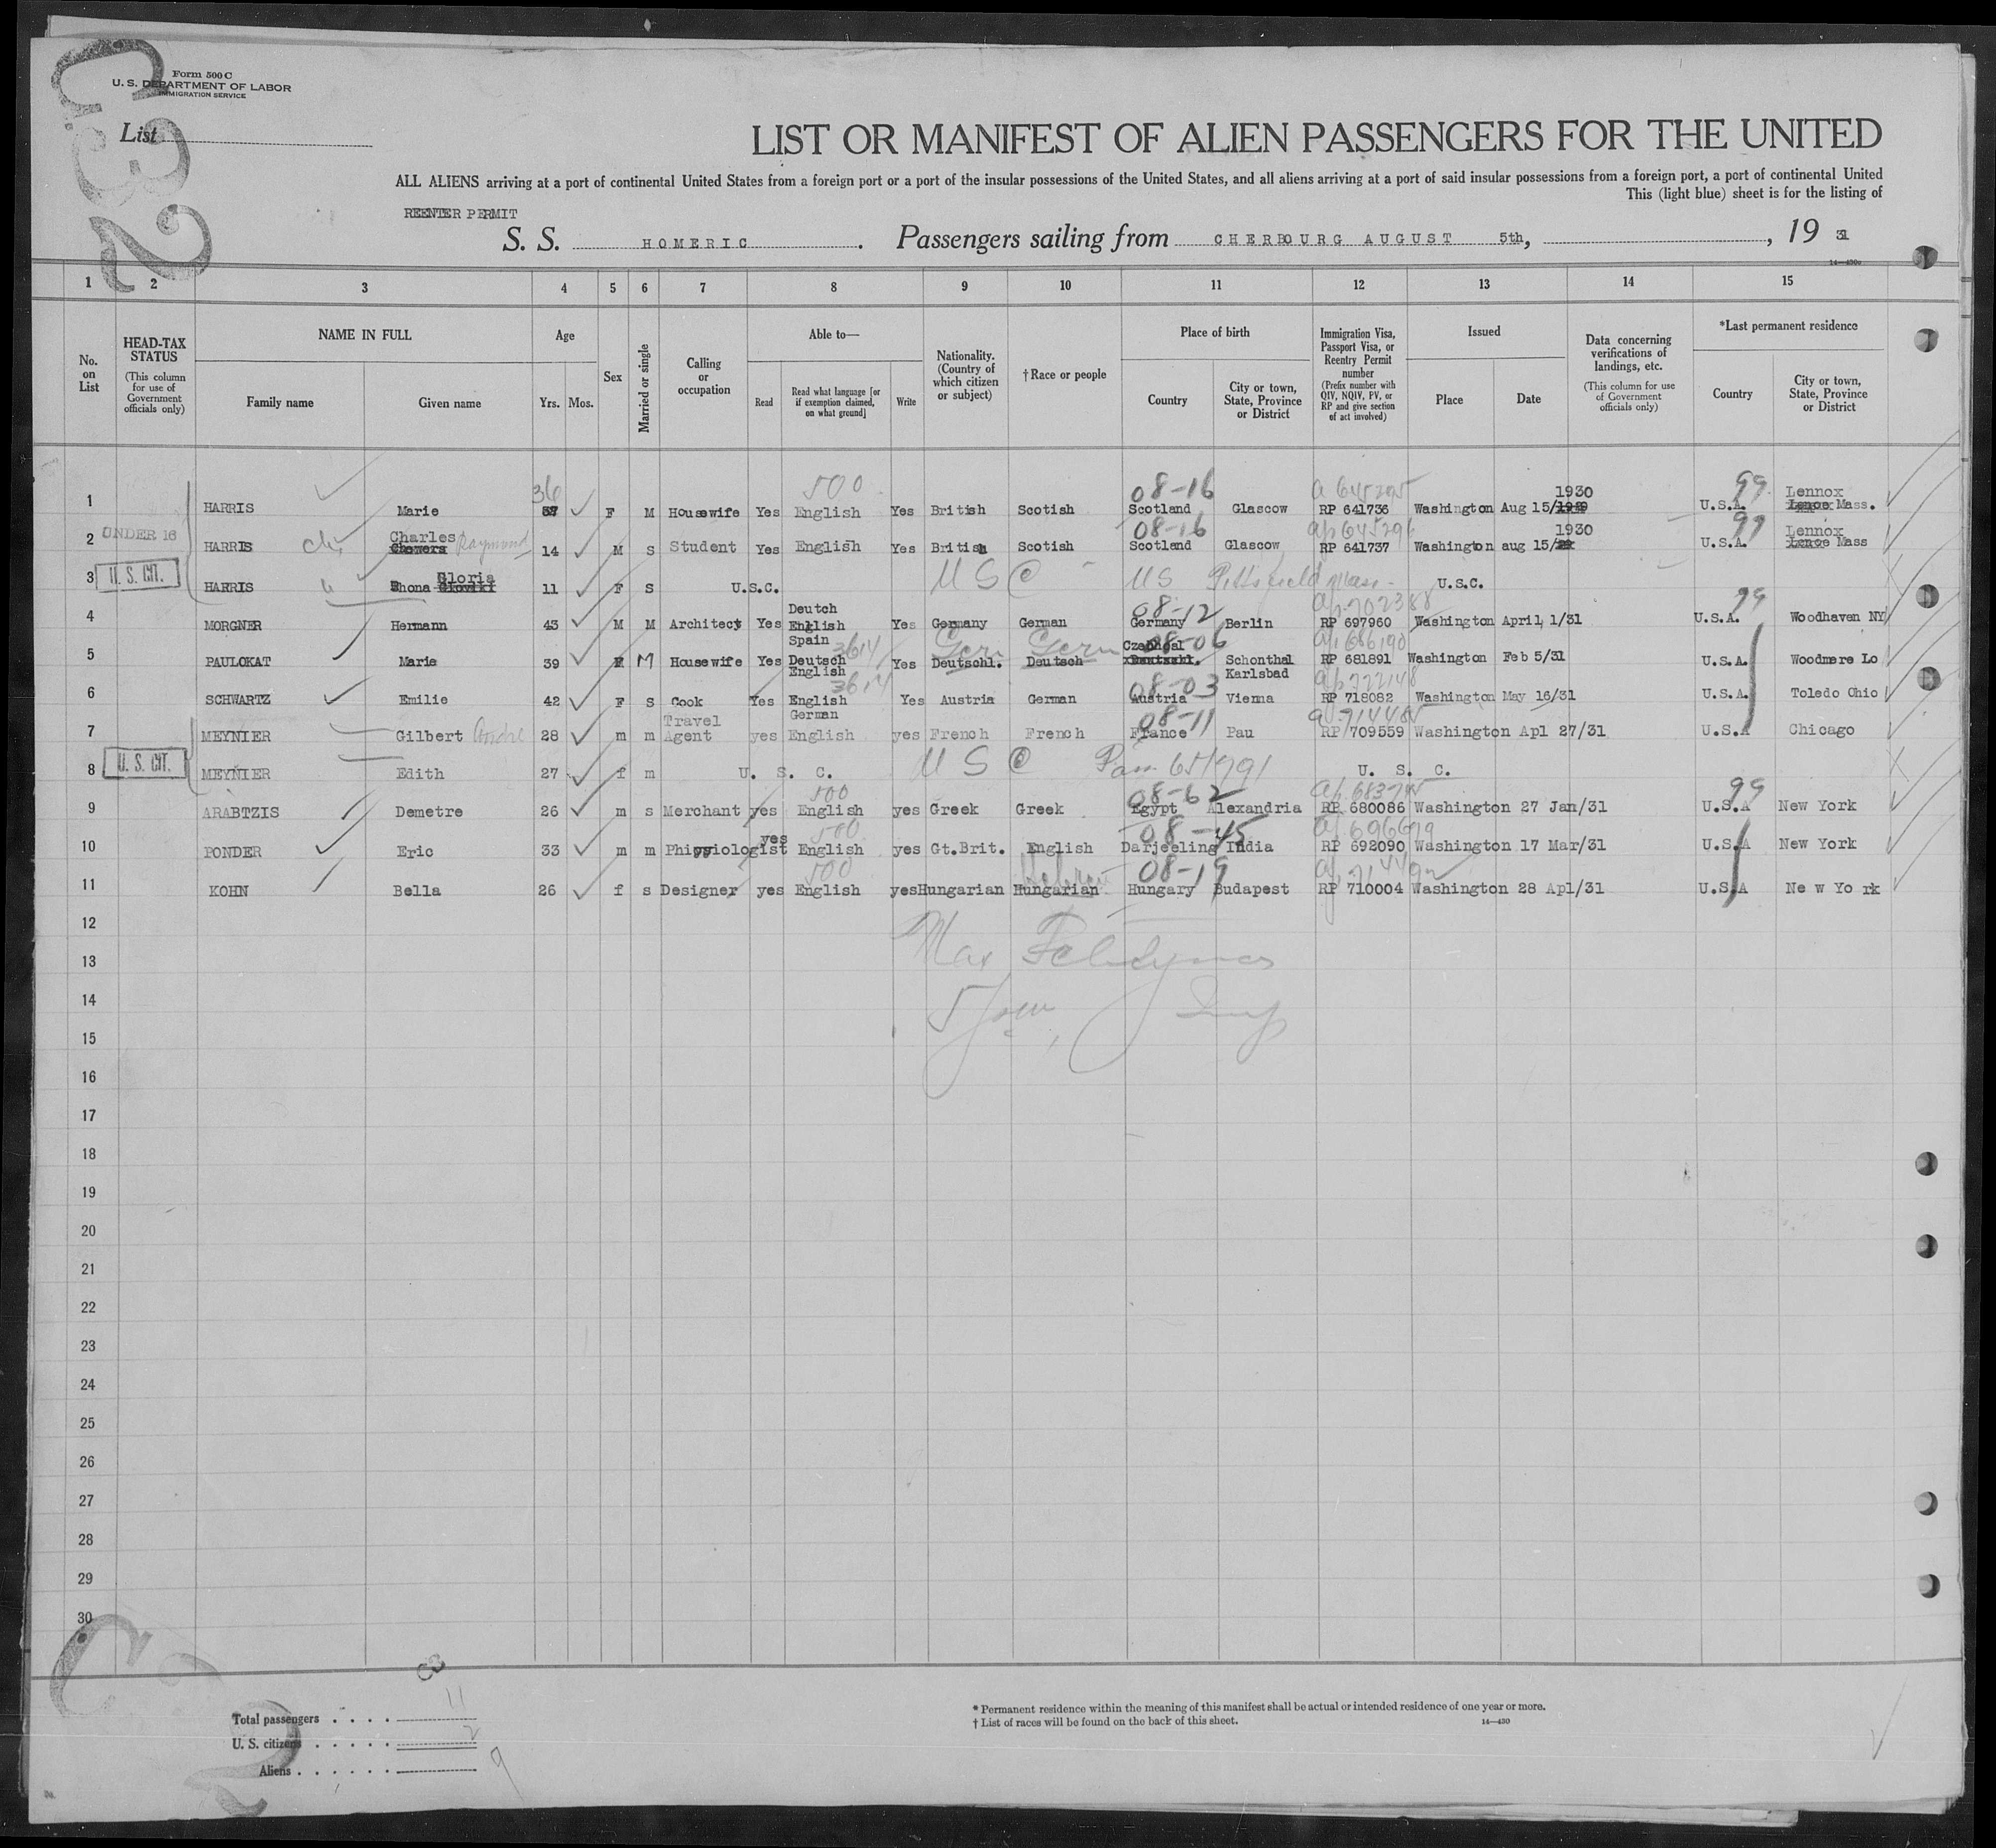 Form 500 C
U. S. DEPARTMENT OF LABOR
IMMIGRATION SERVICE
C32
List
LIST OR MANIFEST OF ALIEN PASSENGERS FOR THE UNITED
ALL ALIENS arriving at a port of continental United States from a foreign port or a port of the insular possessions of the United States, and all aliens arriving at a port of said insular possessions from a foreign port, a port of continental United
This (light blue) sheet is for the listing of
REENTER PERMIT
S. S. HOMERIC. Passengers sailing from CHERBOURG AUGUST 5th, , 19 31
14—430
1 2 3 4 5 6 7 8 9 10 11 12 13 14 15
No. on List
HEAD-TAX STATUS (This column for use of Government officials only)
NAME IN FULL Family name Given name
Age Yrs. Mos.
Sex
Married or single
Calling or occupation
Able to— Read Read what language [or if exemption claimed, on what ground] Write
Nationality. (Country of which citizen or subject)
†Race or people
Place of birth Country City or town, State, Province or District
Immigration Visa, Passport Visa, or Reentry Permit number (Prefix number with QIV, NQIV, PV, or RP and give section of act involved)
Issued Place Date
Data concerning verifications of landings, etc. (This column for use of Government officials only)
*Last permanent residence Country City or town, State, Province or District
36 500 08-16 1930 99 Lennox
1 HARRIS Marie 37 F M Housewife Yes English Yes British Scotish Scotland Glascow RP 641736 Washington Aug 15/ U.S.A. Lenox Mass.
UNDER 16 Charles Raymond 08-16 1930 99 Lennox
2 HARRIS 14 M S Student Yes English Yes British Scotish Scotland Glascow RP 641737 Washington aug 15/ U.S.A. Mass
U. S. CIT. Gloria
3 HARRIS Rhona 11 F S U.S.C. U S C U S Pittsfield Mass- U.S.C.
Deutch 08-12 ap 702388 99
4 MORGNER Hermann 43 M M Architect Yes English Yes Germany German Germany Berlin RP 697960 Washington April, 1/31 U.S.A. Woodhaven NY
Spain 3614 Germ Germ 08-06 ap 686190
5 PAULOKAT Marie 39 M Housewife Yes Deutsch English Yes Deutschl. Deutsch Schonthal Karlsbad RP 681891 Washington Feb 5/31 U.S.A. Woodmere Lo
3614 08-03 ap 722148
6 SCHWARTZ Emilie 42 F S Cook Yes English German Yes Austria German Austria Vienna RP 718082 Washington May 16/31 U.S.A. Toledo Ohio
Travel 08-11
7 MEYNIER Gilbert André 28 m m Agent yes English yes French French France Pau RP 709559 Washington Apl 27/31 U.S.A Chicago
U. S. CIT.
8 MEYNIER Edith 27 f m U. S. C. U S C Pass 651791 U. S. C.
500 08-62 99
9 ARABTZIS Demetre 26 m s Merchant yes English yes Greek Greek Egypt Alexandria RP 680086 Washington 27 Jan/31 U.S.A New York
yes 500 08-45 ap 696679
10 PONDER Eric 33 m m Phisyiologist English yes Gt.Brit. English Darjeeling India RP 692090 Washington 17 Mar/31 U.S.A New York
500 Hebrew 08-19
11 KOHN Bella 26 f s Designer yes English yes Hungarian Hungarian Hungary Budapest RP 710004 Washington 28 Apl/31 U.S.A Ne w Yo rk
12
13 Max
14
15
16
17
18
19
20
21
22
23
24
25
26
27
28
29
30
Total passengers . . . . 11
U. S. citizens . . . . . 2
Aliens . . . . . . 9
* Permanent residence within the meaning of this manifest shall be actual or intended residence of one year or more.
† List of races will be found on the back of this sheet.
14—430